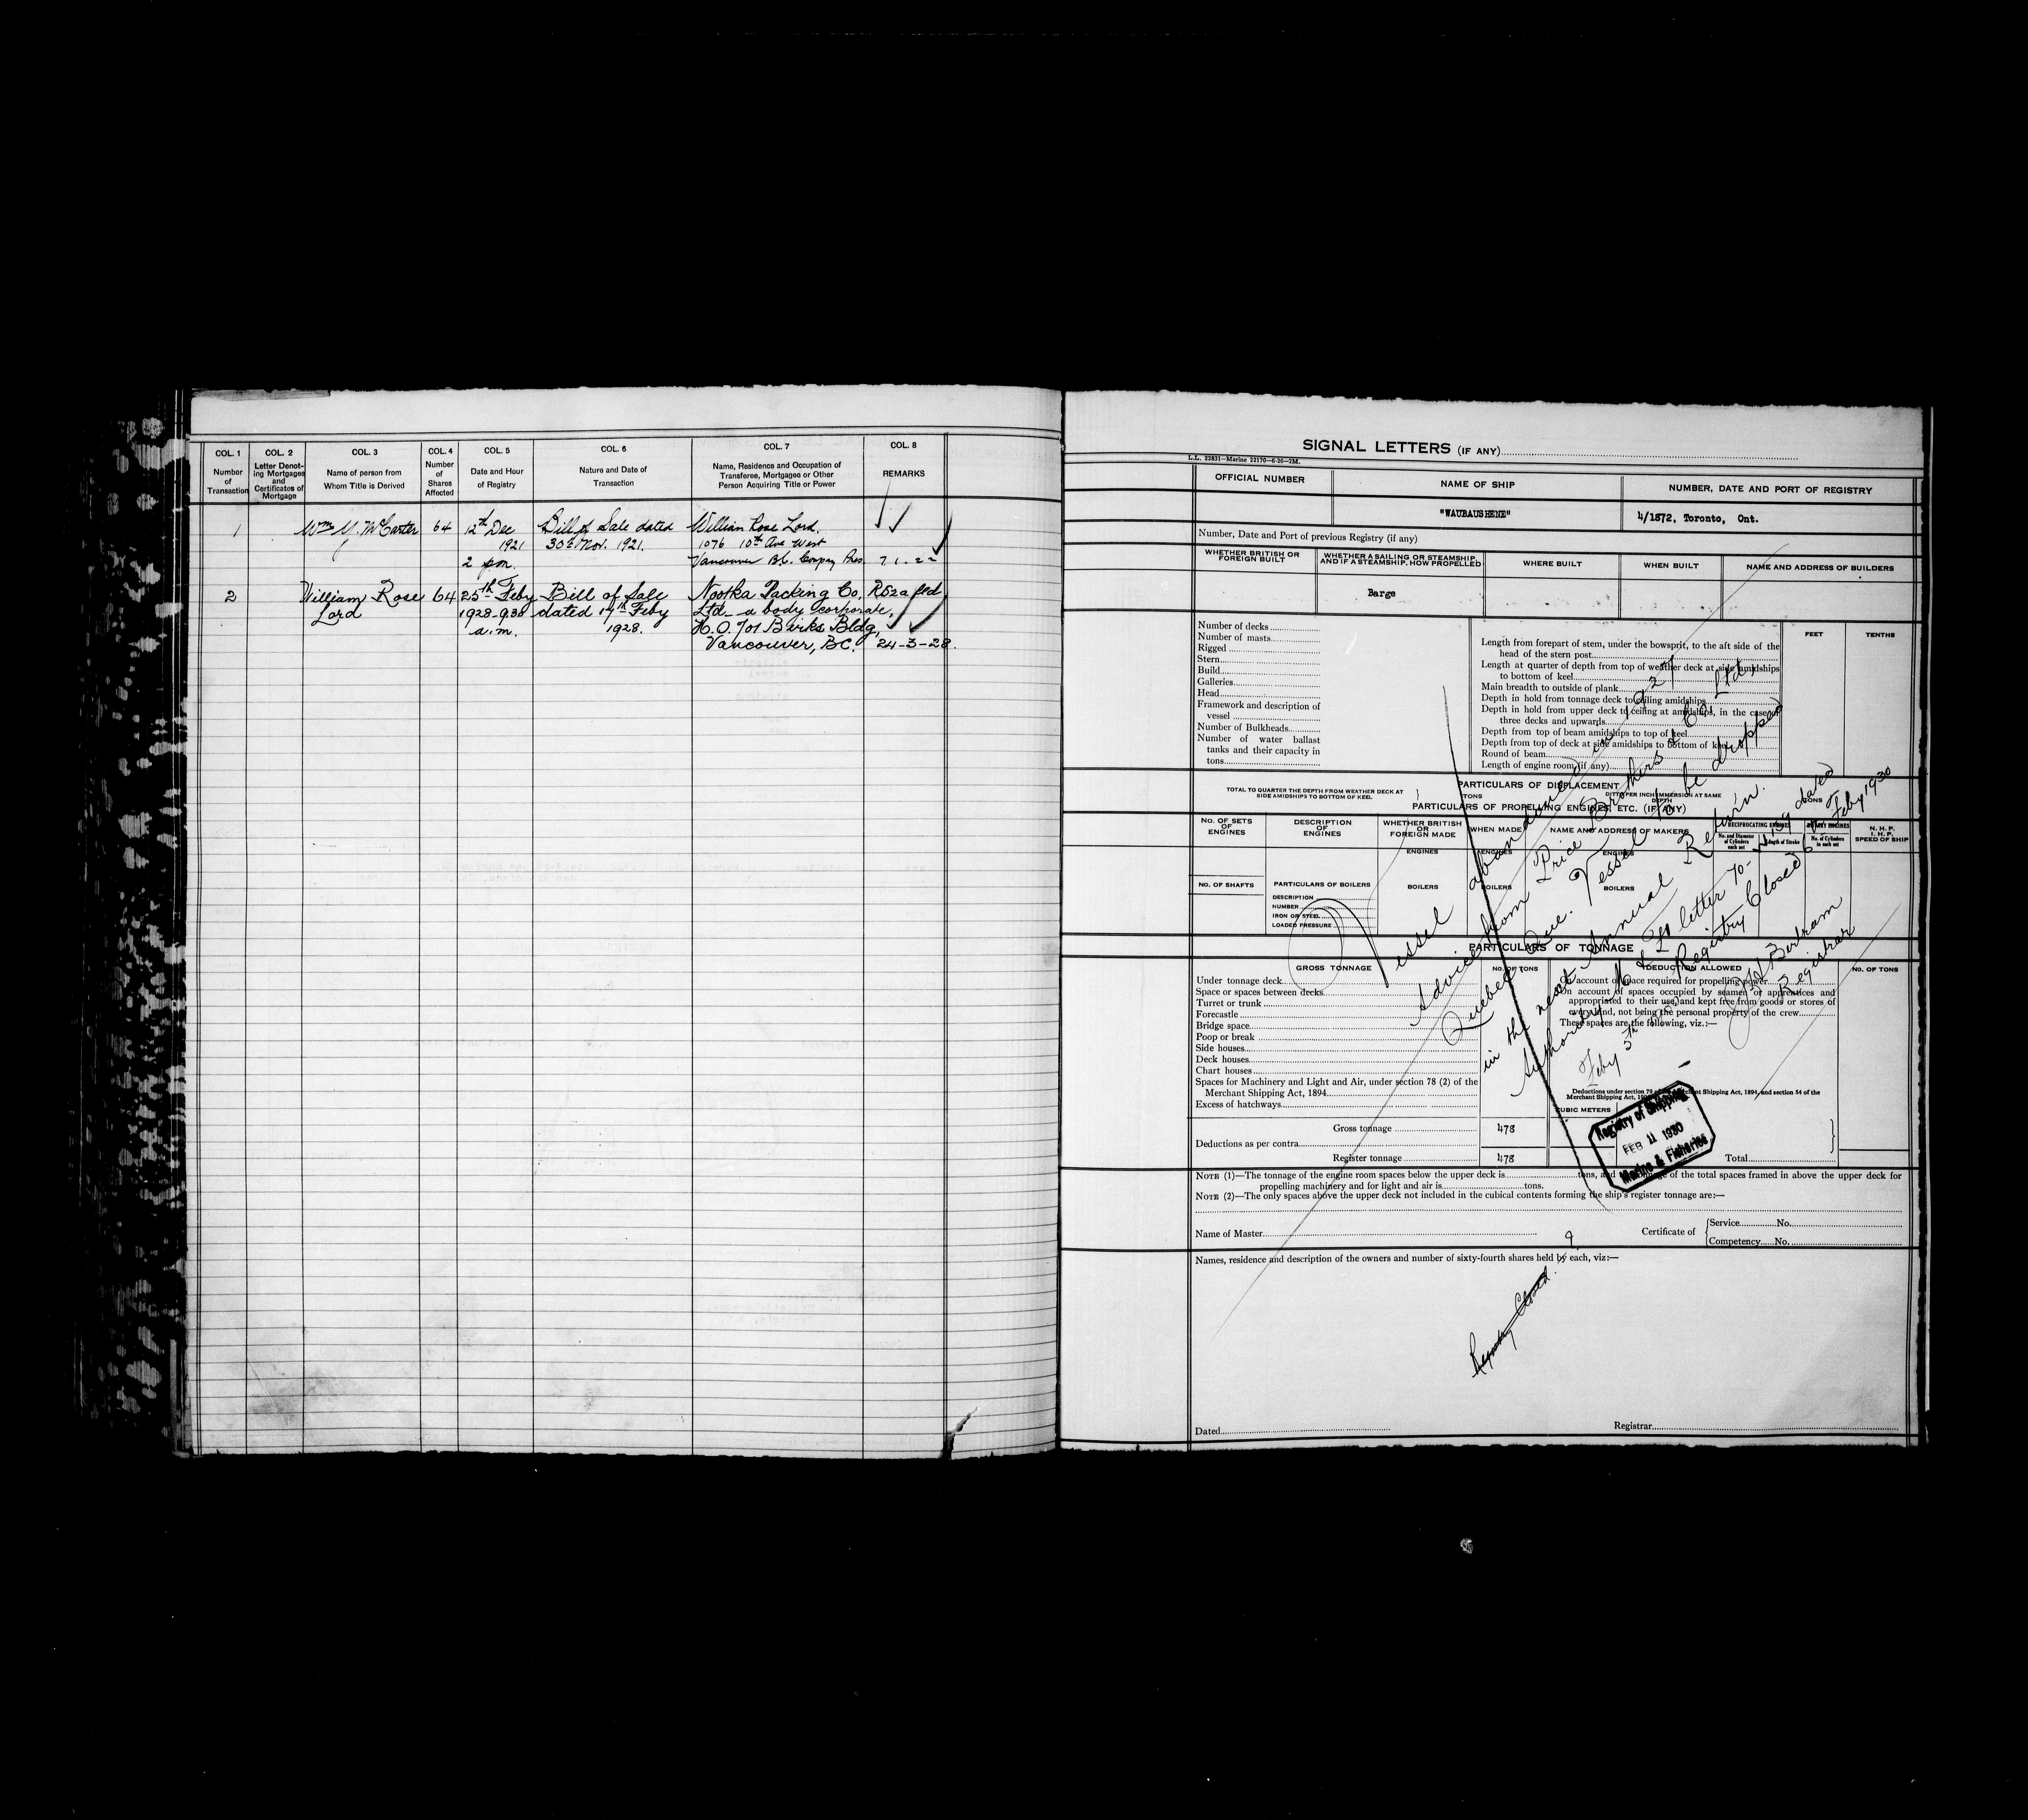 COL. 1
Number
of
Transaction
COL. 2
Letter Denot-
ing Mortgages
and
Certificates of
Mortgage
COL. 3
Name of person from
Whom Title is Derived
COL. 4
Number
of
Shares
Affected
COL. 5
Date and Hour
of Registry
COL. 6
Nature and Date of
Transaction
COL. 7
Name, Residence and Occupation of
Transferee, Mortgagee or Other
Person Acquiring Title or Power
COL. 8
REMARKS
1 Wm M. McCarter 64 12th Dec Bill of Sale dated William Rose Lord.
1921 30th Nov. 1921. 1076 10th Ave West
2 pm. Vancouver B.C. Company Pres. 7.1.22
2 William Rose 64 25th Feby Bill of Sale Nootka Packing Co.
Lord 1928-9.30 dated 17th Feby Ltd. a body corporate,
a.m. 1928. H.O. 701 Birks Bldg,
Vancouver, B.C. 24-3-28.
SIGNAL LETTERS (IF ANY)
L.L. 22831—Marine 22170—6-26—2M.
OFFICIAL NUMBER
NAME OF SHIP
NUMBER, DATE AND PORT OF REGISTRY
"WAUBAUSHENE"
4/1872, Toronto, Ont.
Number, Date and Port of previous Registry (if any)
WHETHER BRITISH OR
FOREIGN BUILT
WHETHER A SAILING OR STEAMSHIP,
AND IF A STEAMSHIP, HOW PROPELLED
WHERE BUILT
WHEN BUILT
NAME AND ADDRESS OF BUILDERS
Barge
Number of decks
Number of masts
Rigged
Stern
Build
Galleries
Head
Framework and description of
vessel
Number of Bulkheads
Number of water ballast
tanks and their capacity in
tons
FEET
TENTHS
Length from forepart of stem, under the bowsprit, to the aft side of the
head of the stern post
Length at quarter of depth from top of weather deck at side amidships
to bottom of keel
Main breadth to outside of plank
Depth in hold from tonnage deck to ceiling amidships
Depth in hold from upper deck to ceiling at amidships, in the case of
three decks and upwards
Depth from top of beam amidships to top of keel
Depth from top of deck at side amidships to bottom of keel
Round of beam
Length of engine room (if any)
PARTICULARS OF DISPLACEMENT
TOTAL TO QUARTER THE DEPTH FROM WEATHER DECK AT
SIDE AMIDSHIPS TO BOTTOM OF KEEL
TONS
DITTO PER INCH IMMERSION AT SAME
DEPTH
TONS
PARTICULARS OF PROPELLING ENGINES, ETC. (IF ANY)
No. OF SETS
OF
ENGINES
DESCRIPTION
OF
ENGINES
WHETHER BRITISH
OR
FOREIGN MADE
WHEN MADE
NAME AND ADDRESS OF MAKERS
RECIPROCATING ENGINES
No. and Diameter
of Cylinders
each set
Length of Stroke
No. of Cylinders
in each set
N. H. P.
I. H. P.
SPEED OF SHIP
ENGINES
ENGINES
ENGINES
No. OF SHAFTS
PARTICULARS OF BOILERS
BOILERS
BOILERS
BOILERS
DESCRIPTION
NUMBER
IRON OR STEEL
LOADED PRESSURE
PARTICULARS OF TONNAGE
GROSS TONNAGE
No. OF TONS
DEDUCTION ALLOWED
No. OF TONS
Under tonnage deck
Space or spaces between decks
Turret or trunk
Forecastle
Bridge space
Poop or break
Side houses
Deck houses
Chart houses
Spaces for Machinery and Light and Air, under section 78 (2) of the
Merchant Shipping Act, 1894
Excess of hatchways
On account of space required for propelling power
On account of spaces occupied by seamen or apprentices and
appropriated to their use, and kept free from goods or stores of
every kind, not being the personal property of the crew
These spaces are the following, viz.:—
Deductions under section 79 of the Merchant Shipping Act, 1894, and section 54 of the
Merchant Shipping Act,
CUBIC METERS
Gross tonnage 478
Deductions as per contra
Register tonnage 478
Total
Vessel abandoned in 1927
Advice from Price Brothers & Co. Ltd,
Quebec, Que. Vessel to be dropped
in the next Annual Return.
Authority M & F letter dated
Feby 1930
Registry Closed
Feby 5th
Bertram
Registrar
Registry of Shipping
FEB 11 1930
Marine & Fisheries
NOTE (1)—The tonnage of the engine room spaces below the upper deck is tons, and of the total spaces framed in above the upper deck for
propelling machinery and for light and air is tons.
NOTE (2)—The only spaces above the upper deck not included in the cubical contents forming the ship's register tonnage are:—
Name of Master
Certificate of
Service No.
Competency No.
Names, residence and description of the owners and number of sixty-fourth shares held by each, viz:—
Registry Closed.
Dated
Registrar